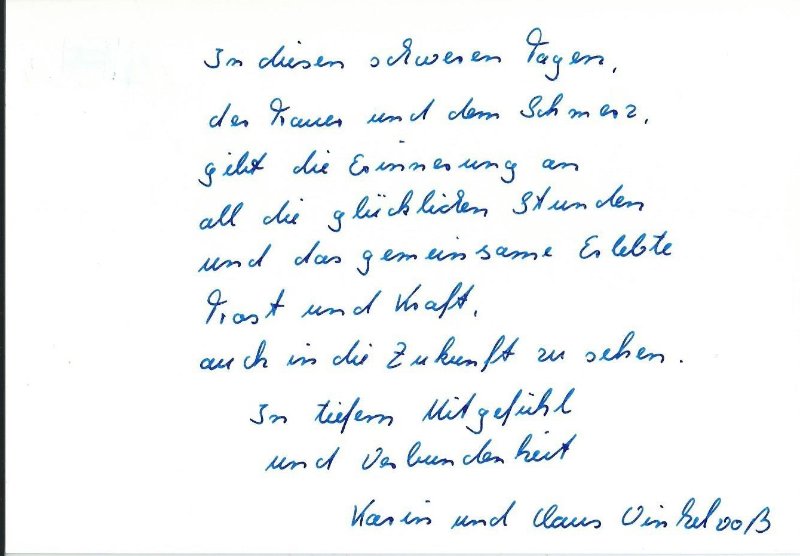 In diesen schweren Tagen,
der Trauer und dem Schmerz,
gibt die Erinnerung an
all die glücklichen Stunden
und das gemeinsame Erlebte
Trost und Kraft,
auch in die Zukunft zu sehen.
In tiefem Mitgefühl
und Verbundenheit
Karin und Claus Vinkelvoß